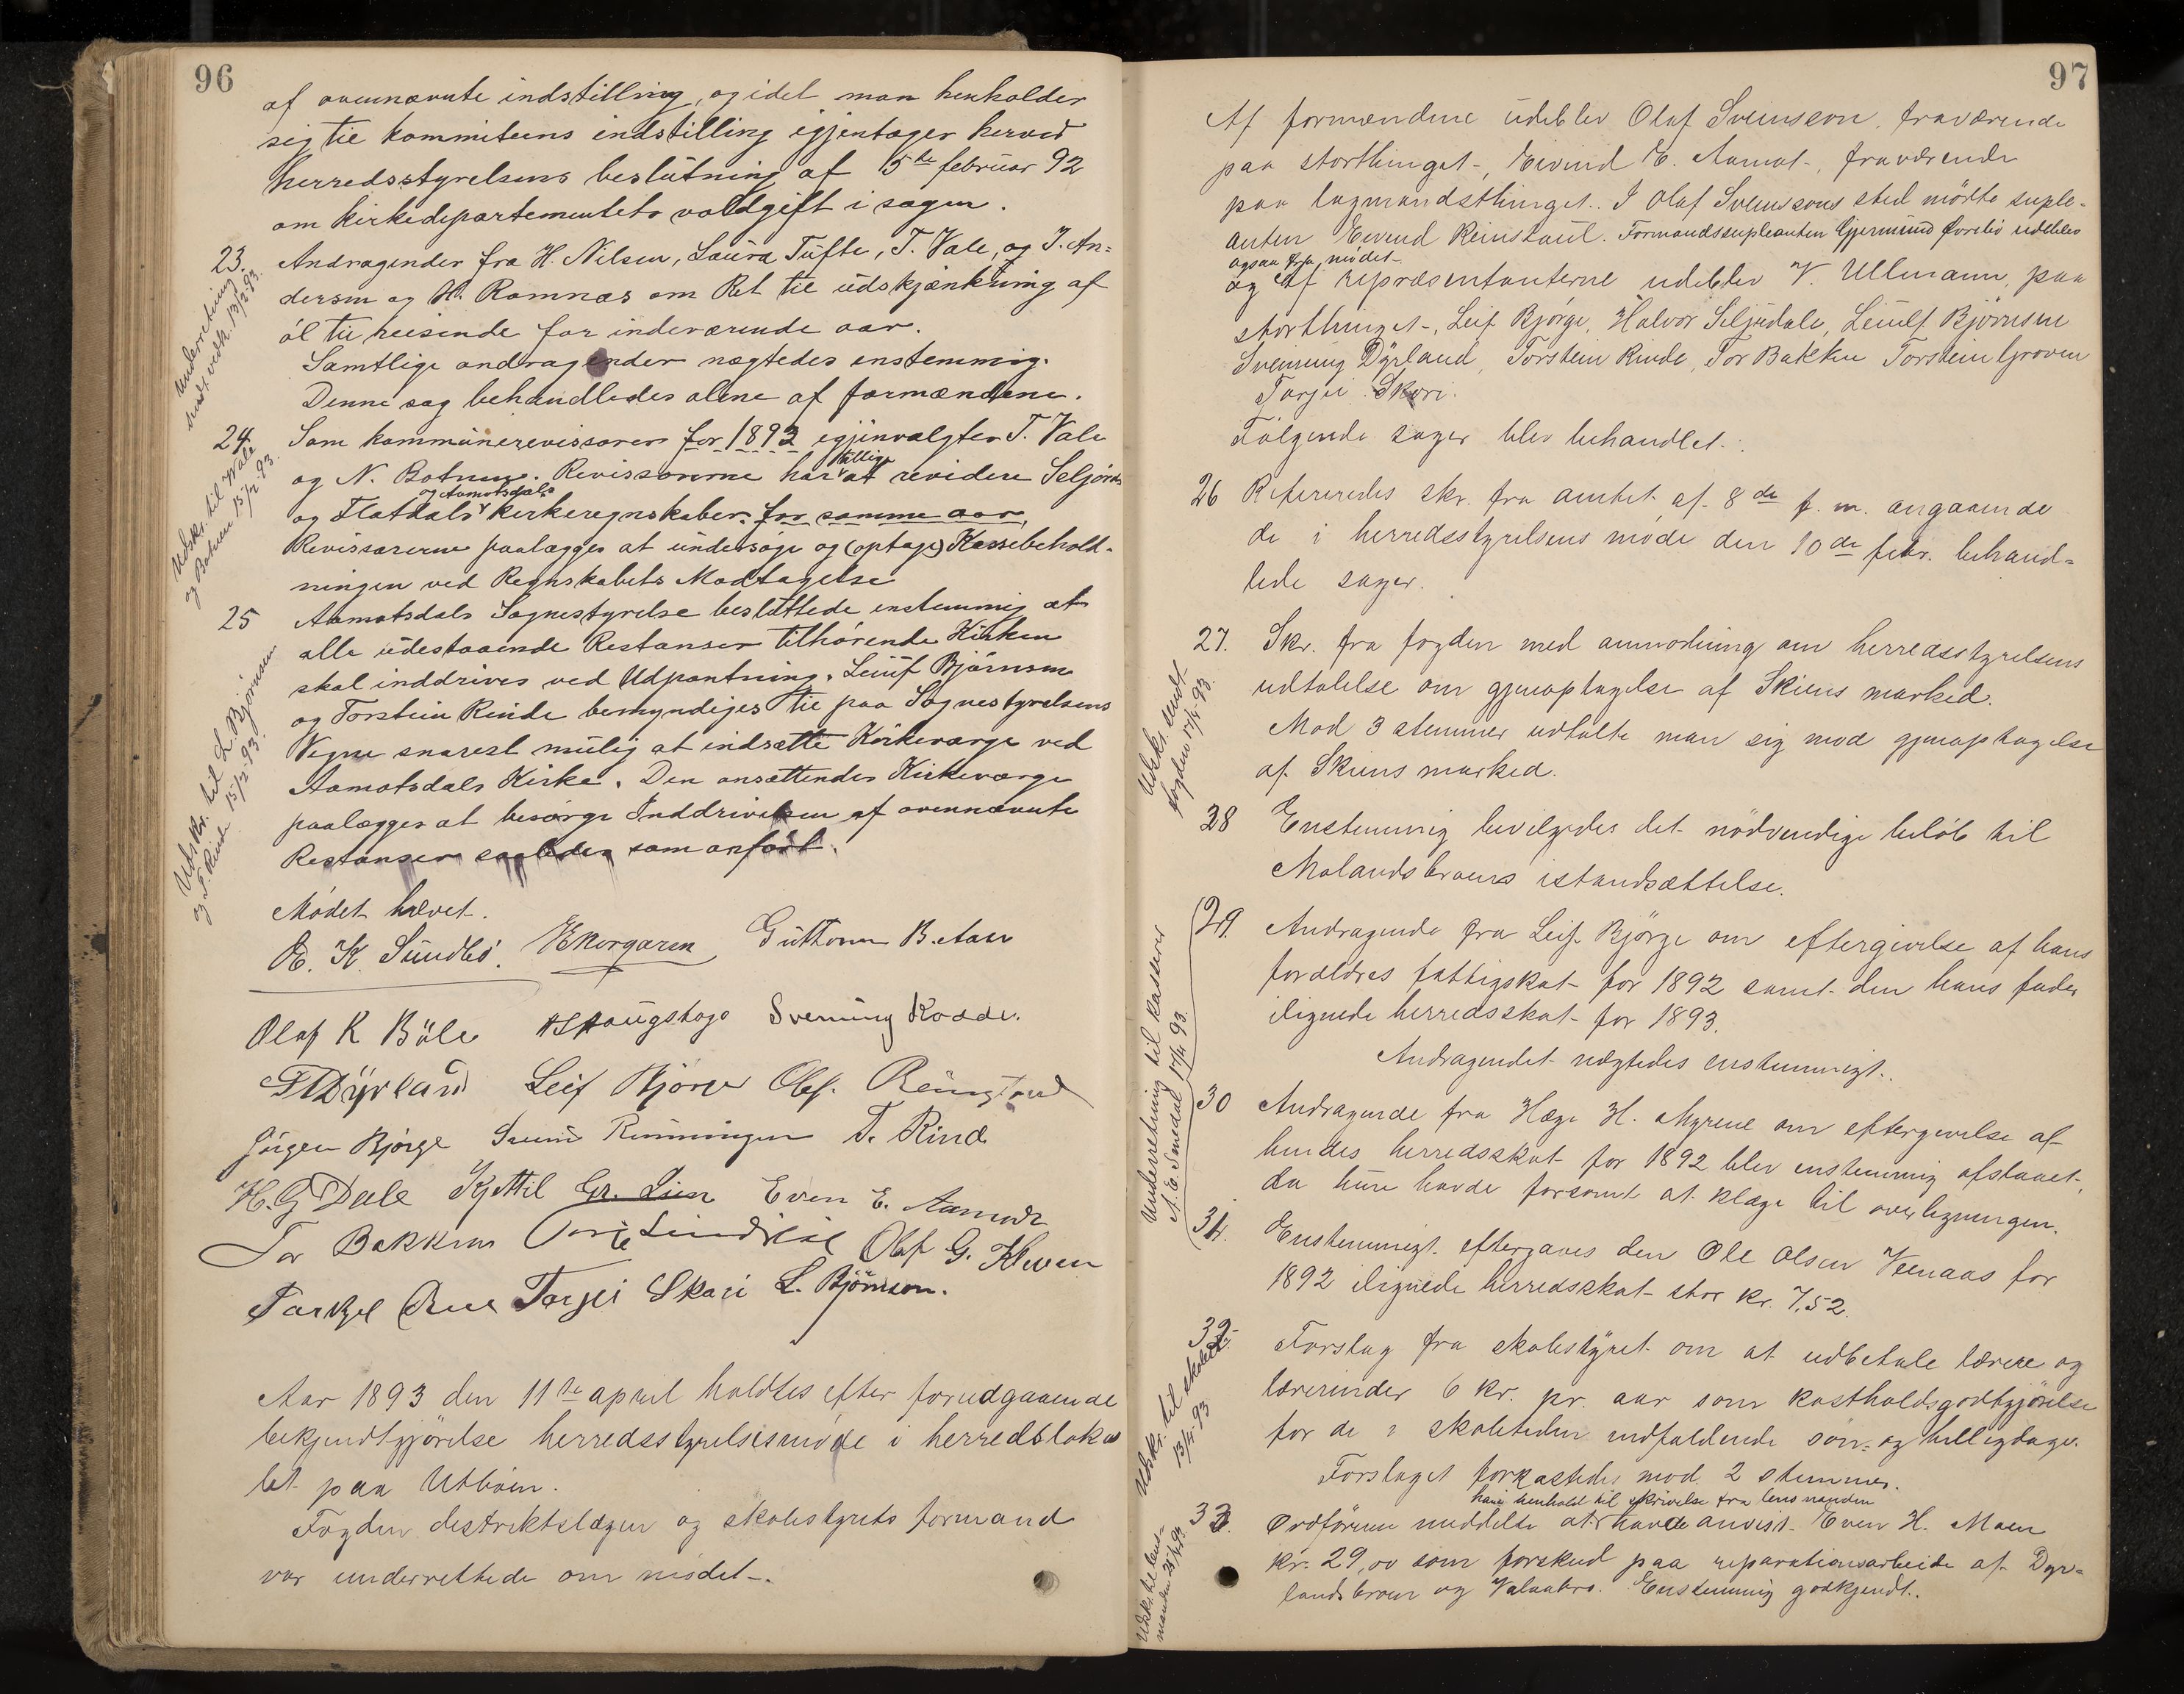 96
af ovennævnte indstilling, og idet man henholder
sig til kommiteens indstilling igjentager herved
herredsstyrelsens beslutning af 5te februar 92
om kirkedepartementets voldgift i sagen.
23. Andragender fra H. Nilsen, Laura Tufte, T. Vale, og J. An-
dersen og H. Romnæs om Ret til udskjænkning af
øl til reisende for indeværende aar.
Samtlige andragender nægtedes enstemmig.
Denne sag behandledes alene af formændene.
Underretning
sendt vedk. 13/2 93.
24. Som kommunerevisorer for 1893 igjenvalgtes T. Vale
og N. Botnen. Revisorerne har tillige at revidere Seljords
og Flatdals og Aamotsdals kirkeregnskaber for samme aar.
Revisorerne paalægges at undersøge og (optage) Kassebehold-
ningen ved Regnskabets Modtagelse
Udskr. til Vale
og Botnen 15/2 93.
25 Aamotsdals Sognestyrelse besluttede enstemmig at
alle udestaaende Restanser tilhørende Kirken
skal inddrives ved Udpantning. Leiulf Bjørnsen
og Torstein Rinde bemyndiges til paa Sognestyrelsens
Vegne snarest mulig at indsætte Kirkeværge ved
Aamotsdals Kirke. Den ansættendes Kirkeværge
paalægges at besørge Inddrivelsen af ovennævnte
Restanser saaledes som anført.
Udskr. til L. Bjørnsen
og T. Rinde 15/2 93.
Mødet hævet.
O. K. Sundbø. Guttorm B. Aase
Olaf K Bøle Svenung Kosde.
Dyrland Leif Bjørge Olaf. Reingtaul
Jørgen Bjørge Svein Rinningen T. Rinde
H. G Dale Kjettil Gr. Lien Even E. Aamodt
Tor Bakken Olaf G. Kleven
Tarjei Skori L. Björnson.
Aar 1893 den 11te april holdtes efter forudgaaende
bekjendtgjørelse herredsstyrelsesmøde i herredsloka
let paa Utbøen.
Fogden distriktslægen og skolestyrets formand
var underrettede om mødet.
97
Af formændene udeblev Olaf Sveinsson, fraværende
paa storthinget, Eivind E. Aamot, fraværende
paa lagmandsthinget. I Olaf Sveinssons sted mødte suple-
anten Eivend Reinstaul. Formandssupleanten Gjermund Førebø udeblev
ogsaa fra mødet
og af repræsentanterne udeblev V. Ullmann, paa
storthinget, Leif Bjørge, Halvor Seljudale, Leiulf Björnsen
Sveinung Dyrland, Torstein Rinde, Tor Bakken Torstein Groven
Tarjei Skori.
Følgende sager blev behandlet:
26 Refereredes skr. fra amtet af 8de f. m. angaaende
de i herredsstyrelsens møde den 10de febr. behand-
lede sager.
27. Skr. fra fogden med anmodning om herredsstyrelsens
udtalelse om gjenoptagelse af Skiens marked.
Mod 3 stemmer udtalte man sig mod gjenoptagelse
af Skiens marked.
Udskr. sendt
fogden 13/4 93.
28 Enstemmig bevilgedes det nødvendige beløb til
Molandsbroens istandsættelse.
29. Andragende fra Leif Bjørge om eftergivelse af hans
forældres fattigskat for 1892 samt den hans fader
ilignede herredsskat for 1893.
Andragendet nægtedes enstemmigt.
Underretning til kasserer
A. E. Smedal 13/4 93.
30 Andragende fra Hæge H. Myrene om eftergivelse af
hendes herredsskat for 1892 blev enstemmig afslaaet,
da hun havde forsømt at klage til overligningen.
31. Enstemmigt eftergaves den Ole Olsen Veenaas for
1892 ilignede herredsskat stor kr. 7,52.
32. Forslag fra skolestyret om at udbetale lærere og
lærerinder 6 kr. pr. aar som kostholdsgodtgjørelse
for de i skoletiden indfaldende søn- og helligdage.
Forslaget forkastedes mod 2 stemmer.
Udskr. til skolest.
13/4 93
33. Ordføreren meddelte at han i henhold til skrivelse fra lensmanden havde anvist Even H. Moen
kr. 29,00 som forskud paa reparationsarbeide af Dyr-
landsbroen og Valaabro. Enstemmig godkjendt.
Udskr. til lens-
manden 25/4 93